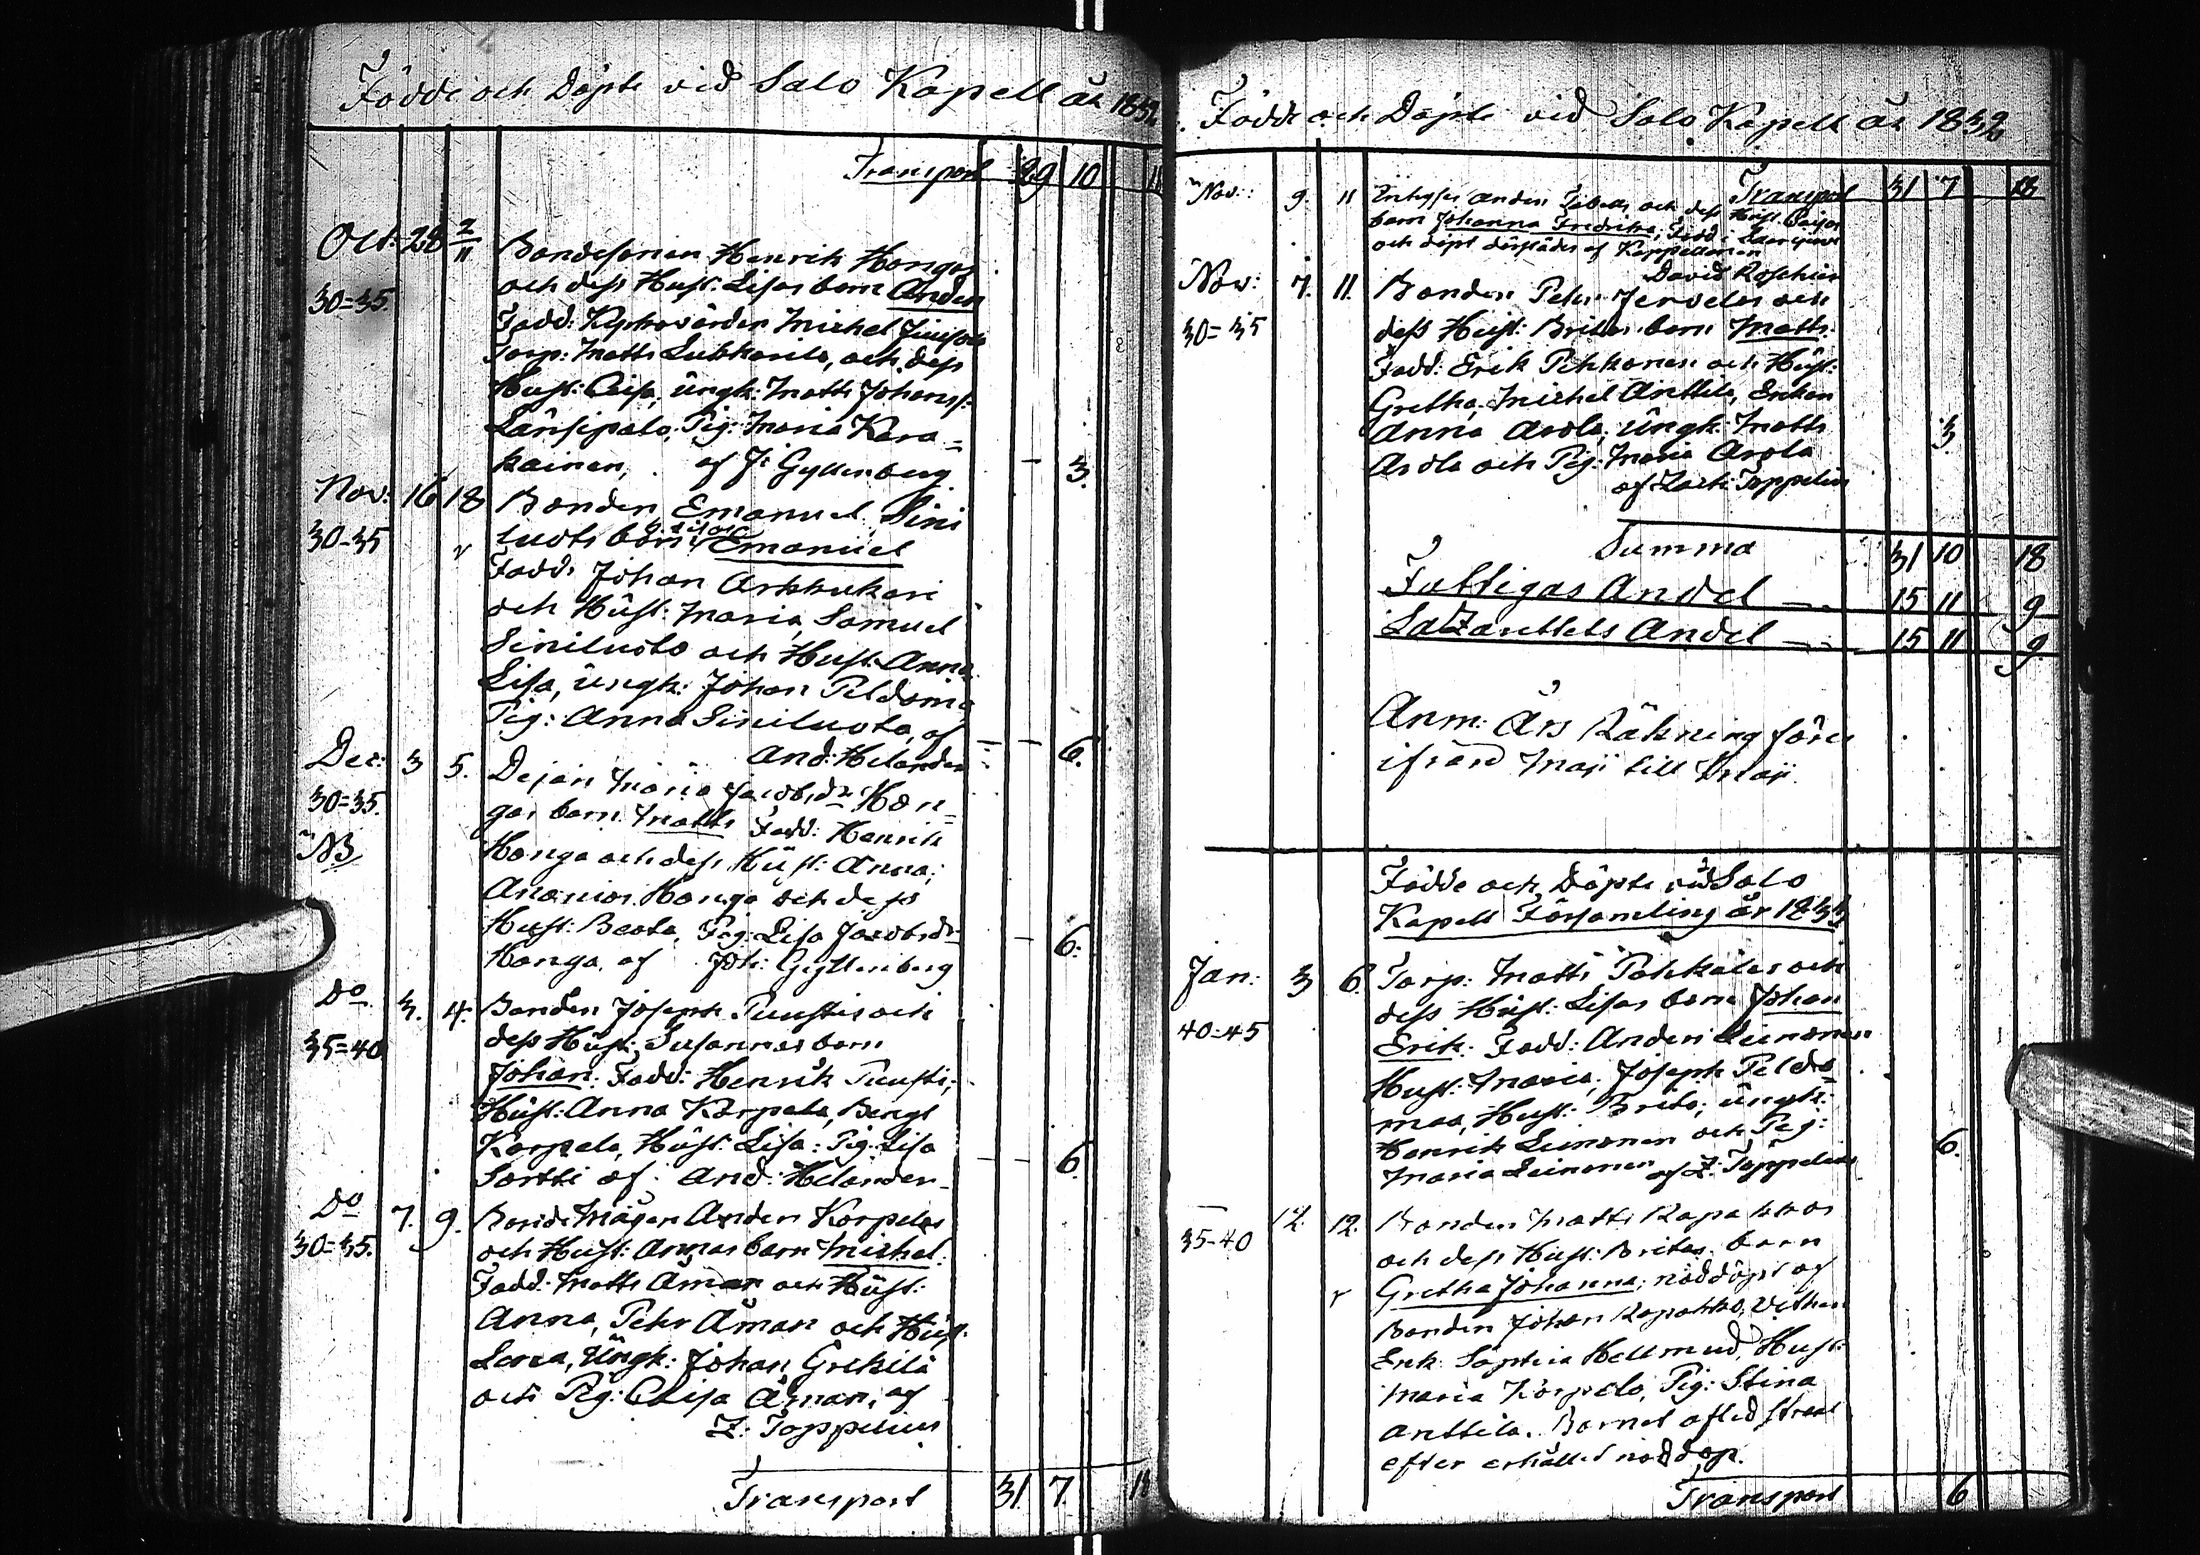 Födde och Döpte vid Salo Kapell år 1832
Transport 29 10
Oct: 28 2/11 Bondesonen Henrik Hongas
och dess Hust: Lisas barn Anders
30=35. Fadd: Kyrkovärden Michel
Torp: Matts Lukkarila, och dess
Hust: Caisa, ungk: Matts Johanss:
Länsipalo, Pig: Maria Kara-
kainen, af J: Gyllenberg - 3.
Nov: 16 18 Bonden Emanuel Sini
30-35 luots barn Emanuel
Fadd: Johan Arkkukari
och Hust: Maria, Samuel
Siniluoto och Hust: Anna
Lisa, ungk: Johan Peldoma
Pig: Anna Siniluoto, af
And: Helander - - 6.
Dec: 3 5. Dejan Maria Jacobsdr Hon-
30=35. gas barn Matts Fadd: Henrik
NB Honga och dess Hust: Anna;
Ananias Honga och dess
Hust: Beata, Pig: Lisa Jacobsdr
Honga, af Joh: Gyllenberg - 6.
Do 3. 4. Bonden Joseph Puustis och
35=40 dess Hust: Susannas barn
Johan: Fadd: Henrik Puusti,
Hust: Anna Korpela, Bengt
Korpela, Hust: Lisa: Pig: Lisa
Sortti af: And: Helander - - 6
Do 7. 9. Bonde Mågen Anders Korpelas
30=35. och Hust: Annas barn Michel.
Fadd: Matts Åman och Hust:
Anna, Pehr Åman och Hust:
Lena, Ungk: Johan Grekilä
och Pig: Caisa Åman, af
Z: Toppelius
Transport 31 7. 18
Födde och Döpte vid Salo Kapell år 1832
Transport 31 7 18
Nov: 9. 11 Anders och dess Hust: Caisas
barn Johanna Fredrika, född i
och döpt därstädes af Kappellanen
David Roschier
Nov: 7. 11. Bonden Pehr Jervelas och
30=35 dess Hust: Britas barn Matts.
Fadd: Erik Pehkonen och Hust:
Gretha, Michel Anttila, Enkan
Anna Arola, Ungk: Matts 3
Arola och Pig: Maria Arola
af Zach: Toppelius
Summa 31 10 18
Fattigas Andel - 15 11 9
Lazarettets Andel - 15 11 9.
Anm: Års Räkning föres
ifrån Maji till Maji.
Födde och Döpte vid Salo
Kapell Församling år 1833
Jan: 3 6. Torp: Matts Pohkalas och
dess Hust: Lisas barn Johan
40=45 Erik: Fadd: Anders Leinonen
Hust: Maria, Joseph Peldo-
maa, Hust: Brita; ungk:
Henrik Leinonen och Pig: 6.
Maria Leinonen af Z: Toppelius
12. 12. Bonden Matts Rapakkos
35-40 och dess Hust: Britas barn
Gretha Johanna, nöddöpt af
Bonden Johan Rapakko, Vittnen
Enk: Sophia Hellmud, Hust:
Maria Korpelo, Pig: Stina
Anttila. Barnet afled strax
efter erhållet nöddop.
Transport 6